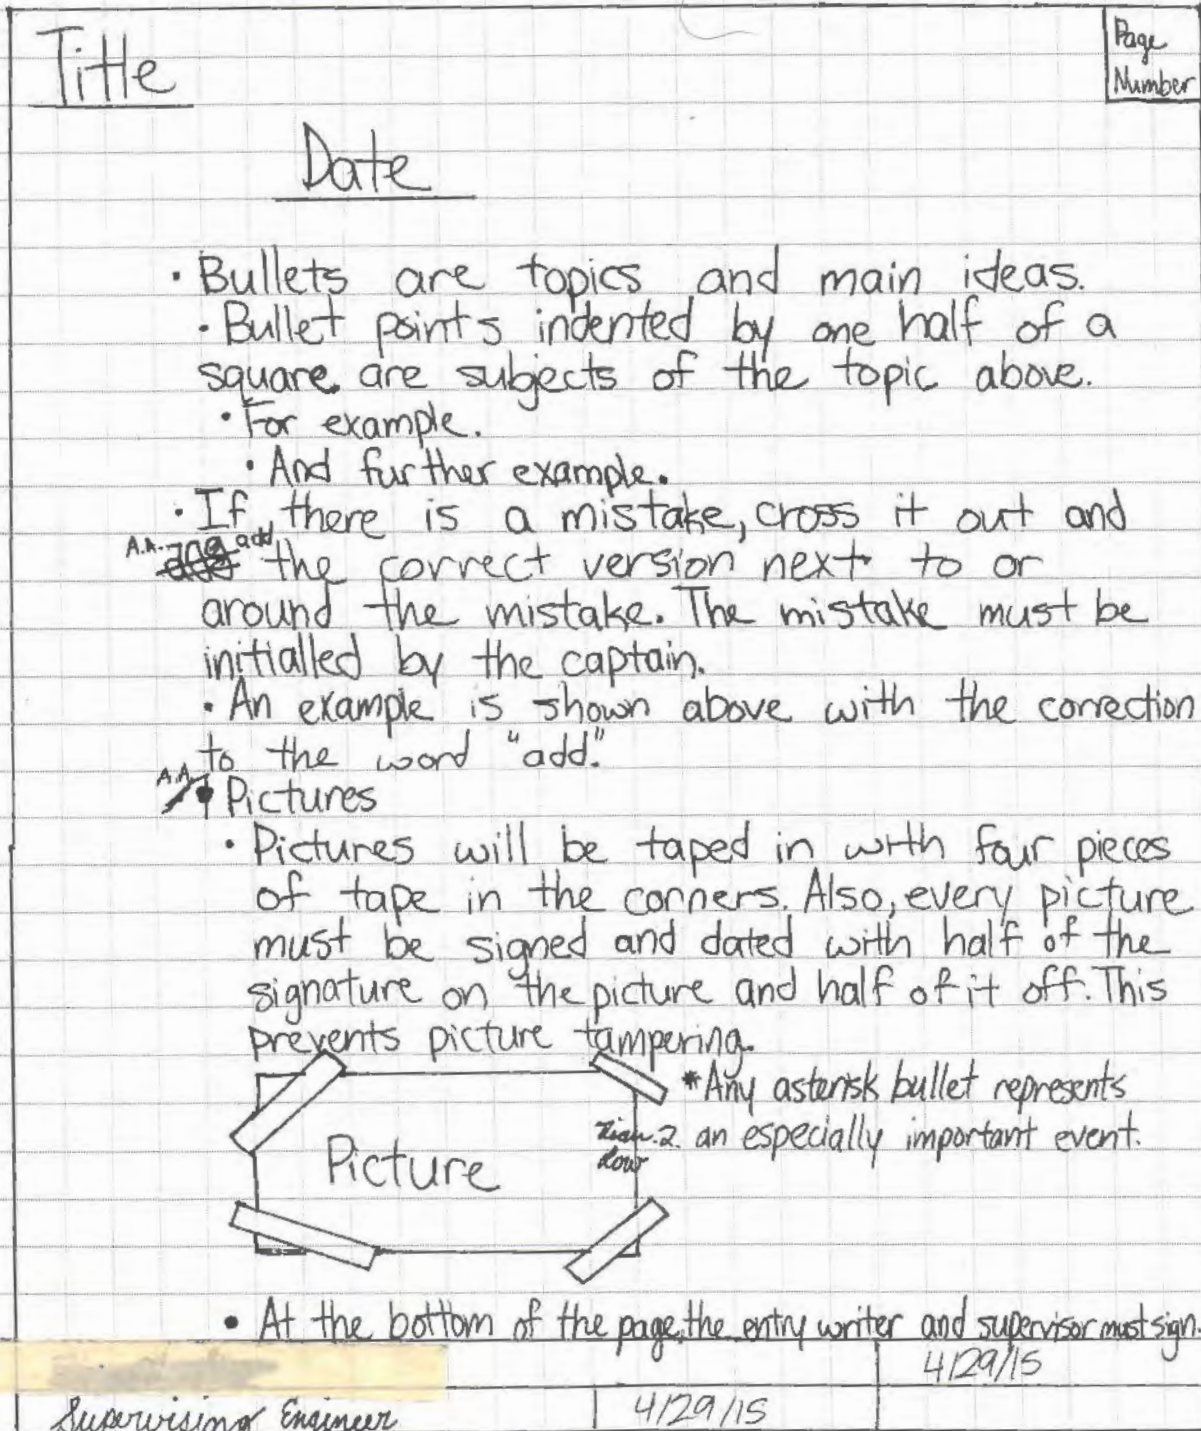 Title
Page
Number
Date
• Bullets are topics and main ideas.
• Bullet points indented by one half of a
square are subjects of the topic above.
• For example.
• And further example.
• If there is a mistake, cross it out and
A.A. add the correct version next to or
around the mistake. The mistake must be
initialled by the captain.
• An example is shown above with the correction
to the word "add."
A.A. • Pictures
• Pictures will be taped in with four pieces
of tape in the corners. Also, every picture
must be signed and dated with half of the
signature on the picture and half of it off. This
prevents picture tampering.
*Any asterisk bullet represents
an especially important event.
Picture
• At the bottom of the page, the entry writer and supervisor must sign.
4/29/15
Supervising Engineer 4/29/15